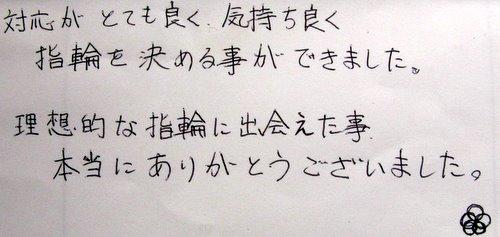 対応がとても良く、気持ち良く
指輪を決める事ができました。
理想的な指輪に出会えた事
本当にありがとうございました。